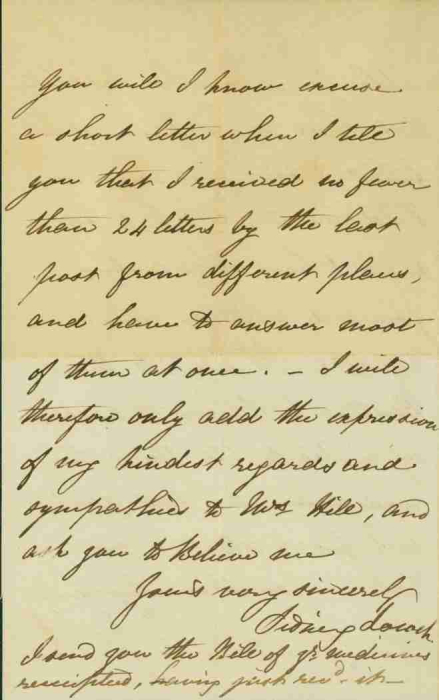 You will I know excuse
a short letter when I tell
you that I received no fewer
than 24 letters by the last
post from different places,
and have to answer most
of them at once. – I will
therefore only add the expression
of my kindest regards and
sympathies to Mrs Hill, and
ask you to believe me
Yours very sincerely
Sidney
I send you the Bill of yr. medicines
receipted, having just recd. it